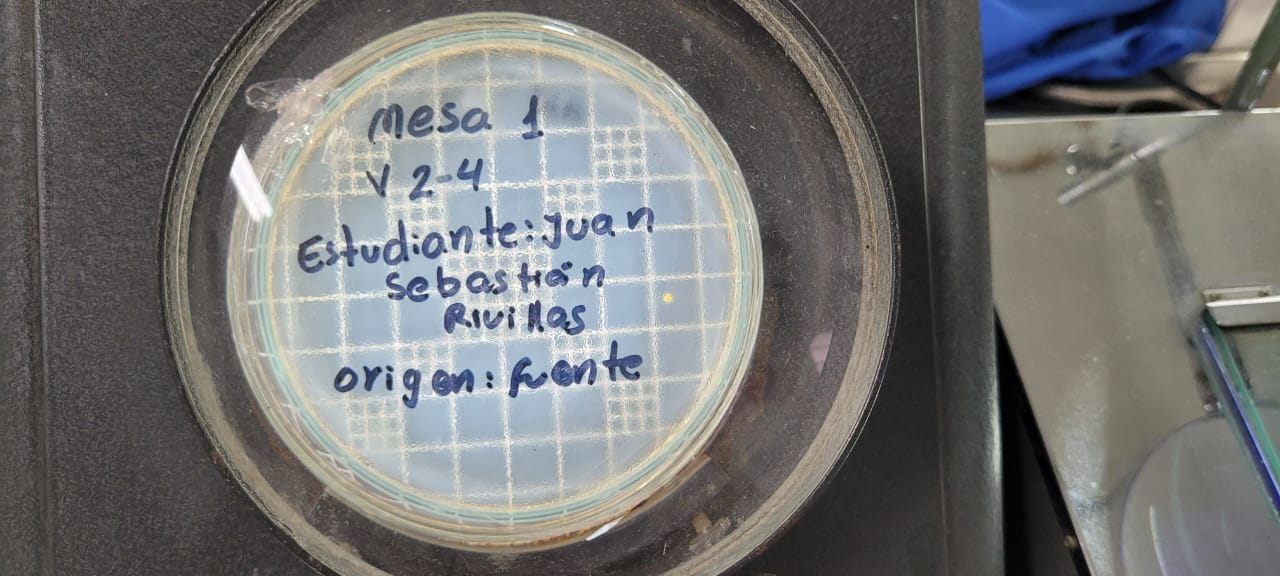 Mesa 1
V 2-4
Estudiante: Juan
Sebastián
Rivillas
origen: fuente